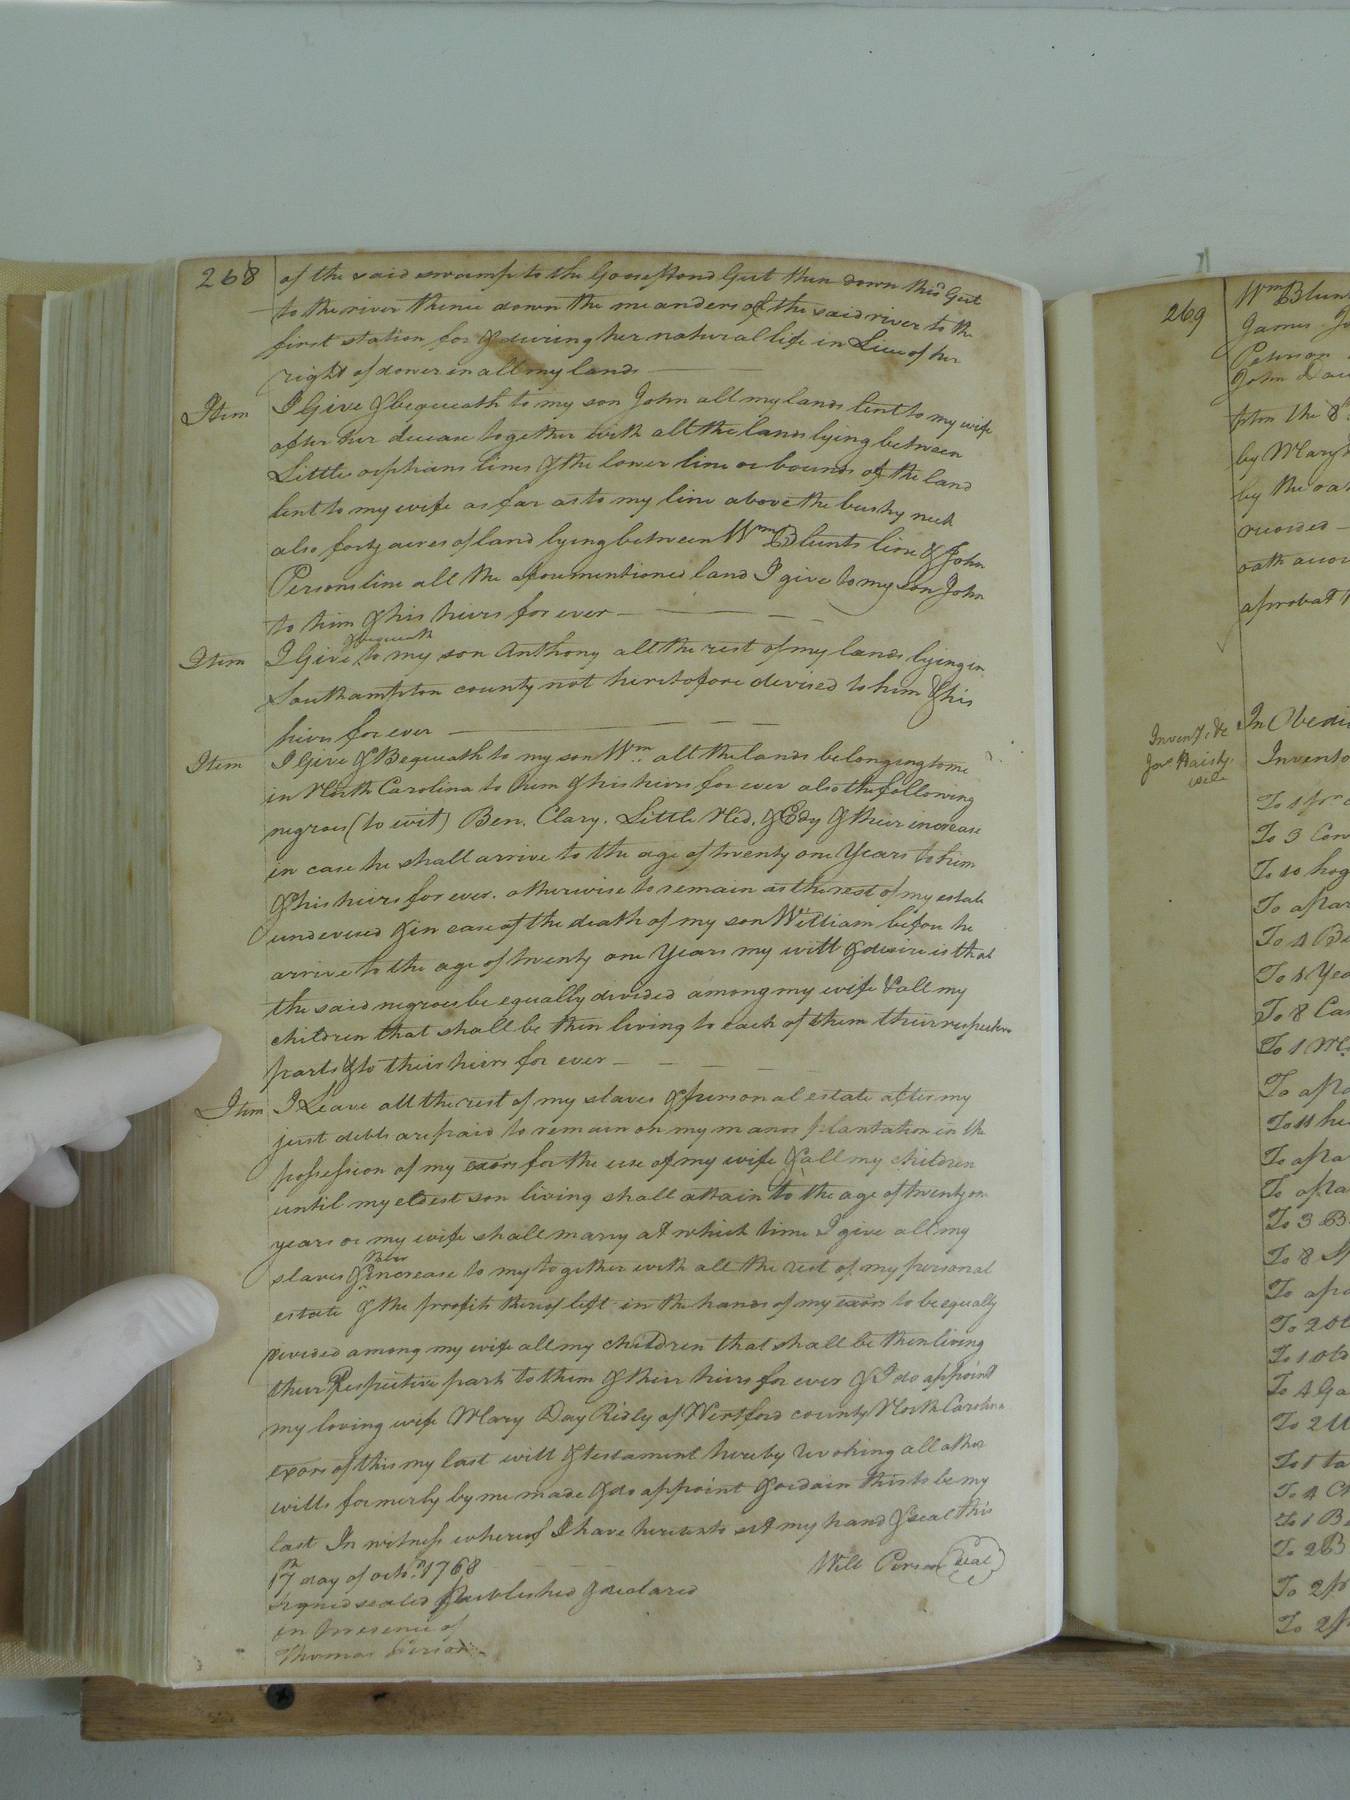 268
of the said swamp to the Goose Pond Gut then down this Gut
to the river thence down the meanders of the said river to the
first station for & during her natural life in Lieu of her
right of dower in all my lands
Item I Give & bequeath to my son John all my lands lent to my wife
after her decease together with all the lands lying between
Little orphans lines & the lower line or bounds of the land
lent to my wife as far as to my line above the bushy neck
also forty acres of land lying between Wm Blunts line & John
Persons line all the aforementioned land I give to my Son John
to him & his heirs for ever
Item I Give & bequeath to my son Anthony all the rest of my lands lying in
Southampton county not heretofore devised to him & his
heirs for ever
Item I Give & Bequeath to my son Wm. all the lands belonging to me
in North Carolina to him & his heirs for ever also the following
negroes (to wit) Ben. Clary. Little Ned. & Edy & their increase
in case he shall arrive to the age of twenty one Years to him
& his heirs for ever. otherwise to remain as the rest of my estate
undevised & in case of the death of my son William before he
arrive to the age of twenty one Years my will & desire is that
the said negroes be equally divided among my wife & all my
children that shall be then living to each of them their respective
parts & to their heirs for ever
Item I Leave all the rest of my slaves & personal estate after my
just debts are paid to remain on my manor plantation in the
possession of my exors for the use of my wife & all my children
until my eldest son living shall attain to the age of twenty one
years or my wife shall marry at which time I give all my
slaves & their increase to my together with all the rest of my personal
estate & the profits thereof left in the hands of my exors to be equally
devided among my wife all my children that shall be then living
their Respective part to them & their heirs for ever & I do appoint
my loving wife Mary Day Ridly of Hertford county North Carolina
exors of this my last will & testament hereby revoking all other
wills formerly by me made & do appoint & ordain this to be my
last In witness whereof I have hereunto set my hand & seal this
17th day of octo. 1768 Will Person seal
signed sealed published & declared
in Presence of
Thomas Person
269
Wm Blunt
James
Peterson
John
pton the 8
by Mary
by the oat
recorded
oath accor
aprobat
Invent. &c
In Obedi
Invento
To 3
To 10 hog
To apar
To 4
To 1
To 8
To 1
To apa
To 11 he
To apa
To apa
To 3 B
To 8
To apa
To 2 old
To 1 old
To 4
To 2
To 1 ta
To 4 C
To 1 B
To 2 B
To 2 p
To 2 p